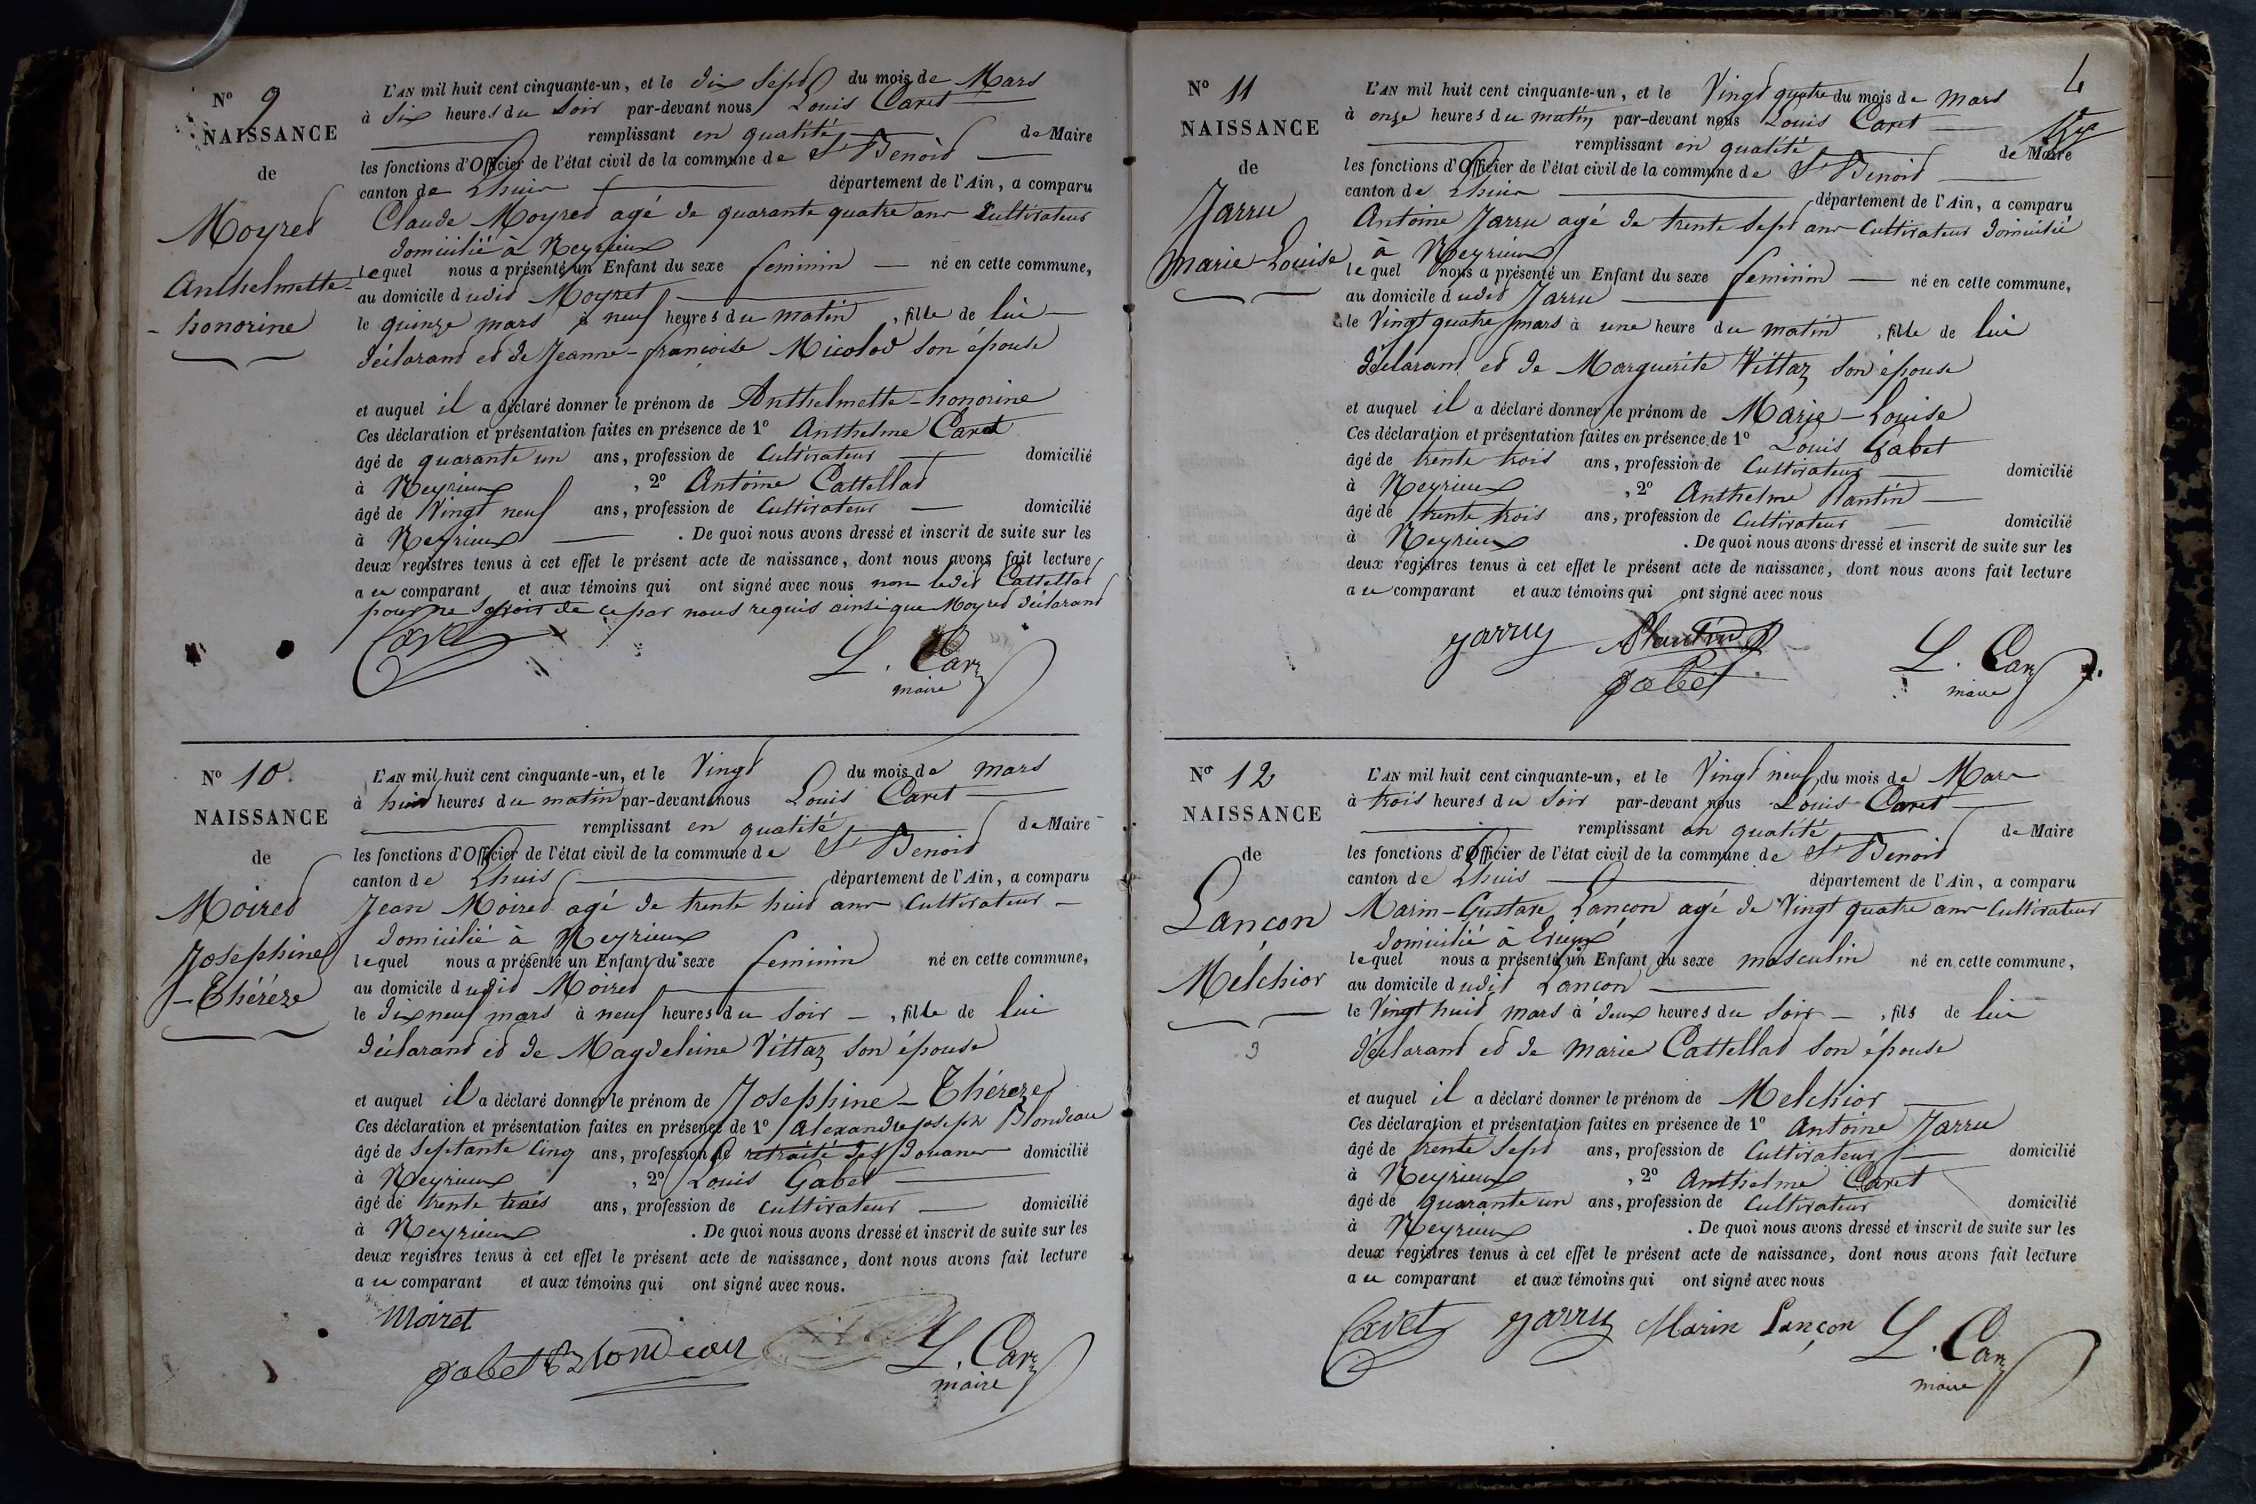 N° 9
NAISSANCE
de
Moyret
Anthelmette-
-honorine
L'AN mil huit cent cinquante-un, et le dix Sept du mois de Mars
à Six heures du Soir par-devant nous Louis Caret
remplissant en qualité de Maire
les fonctions d'Officier de l'état civil de la commune de St Benoit
canton de Lhuis département de l'Ain, a comparu
Claude Moyret agé de quarante quatre ans Cultivateur
domicilié à Neyrieux
lequel nous a présenté un Enfant du sexe feminin né en cette commune,
au domicile dudit Moyret
le quinze mars à neuf heures du matin, fille de lui
déclarant et de Jeanne-françoise Micolod son épouse
et auquel il a déclaré donner le prénom de Anthelmette-honorine
Ces déclaration et présentation faites en présence de 1° Anthelme Caret
âgé de quarante un ans, profession de Cultivateur domicilié
à Neyrieux, 2° Antoine Cattellad
âgé de Vingt neuf ans, profession de Cultivateur domicilié
à Neyrieux. De quoi nous avons dressé et inscrit de suite sur les
deux registres tenus à cet effet le présent acte de naissance, dont nous avons fait lecture
au comparant et aux témoins qui ont signé avec nous non ledit Cattellad
pour ne savoir de ce par nous requis ainsi que Moyret déclarant
L. Car
maire
N° 10.
NAISSANCE
de
Moiret
Josephine
-Thérèze
L'AN mil huit cent cinquante-un, et le Vingt du mois de mars
à huit heures du matin par-devant nous Louis Caret
remplissant en qualité de Maire
les fonctions d'Officier de l'état civil de la commune de St Benoit
canton de Lhuis département de l'Ain, a comparu
Jean Moiret agé de trente huit ans Cultivateur
domicilié à Neyrieux
lequel nous a présenté un Enfant du sexe feminin né en cette commune,
au domicile dudit Moiret
le dix neuf mars à neuf heures du Soir, fille de lui
déclarant et de Magdeleine Vittaz son épouse
et auquel il a déclaré donner le prénom de Josephine-Thérèze
Ces déclaration et présentation faites en présence de 1° Alexandre joseph Blondeau
âgé de Septante Cinq ans, profession de retraité des Douanes domicilié
à Neyrieux, 2° Louis Gabet
âgé de trente trois ans, profession de Cultivateur domicilié
à Neyrieux. De quoi nous avons dressé et inscrit de suite sur les
deux registres tenus à cet effet le présent acte de naissance, dont nous avons fait lecture
au comparant et aux témoins qui ont signé avec nous.
Moiret
gabet Blondeau
L. Car
maire
4
N° 11
NAISSANCE
de
Jarru
marie-Louise
L'AN mil huit cent cinquante-un, et le Vingt quatre du mois de mars
à onze heures du matin par-devant nous Louis Caret
remplissant en qualité de Maire
les fonctions d'Officier de l'état civil de la commune de St Benoit
canton de Lhuis département de l'Ain, a comparu
Antoine Jarru agé de trente Sept ans Cultivateur domicilié
à Neyrieux
lequel nous a présenté un Enfant du sexe feminin né en cette commune,
au domicile dudit Jarru
le Vingt quatre mars à une heure du matin, fille de lui
déclarant et de Marguerite Vittaz son épouse
et auquel il a déclaré donner le prénom de Marie-Louise
Ces déclaration et présentation faites en présence de 1° Louis Gabet
âgé de trente trois ans, profession de Cultivateur domicilié
à Neyrieux, 2° Anthelme Plantin
âgé de trente trois ans, profession de Cultivateur domicilié
à Neyrieux. De quoi nous avons dressé et inscrit de suite sur les
deux registres tenus à cet effet le présent acte de naissance, dont nous avons fait lecture
au comparant et aux témoins qui ont signé avec nous
jarruy Plantin
gabet
L. Car
maire
N° 12
NAISSANCE
de
Lançon
Melchior
L'AN mil huit cent cinquante-un, et le Vingt neuf du mois de Mars
à trois heures du Soir par-devant nous Louis Caret
remplissant en qualité de Maire
les fonctions d'Officier de l'état civil de la commune de St Benoit
canton de Lhuis département de l'Ain, a comparu
Marin-Gustave Lançon agé de Vingt quatre ans Cultivateur
domicilié à
lequel nous a présenté un Enfant du sexe masculin né en cette commune,
au domicile dudit Lançon
le Vingt huit mars à deux heures du Soir, fils de lui
déclarant et de marie Cattellad son épouse
et auquel il a déclaré donner le prénom de Melchior
Ces déclaration et présentation faites en présence de 1° Antoine Jarru
âgé de trente Sept ans, profession de Cultivateur domicilié
à Neyrieux, 2° Anthelme Caret
âgé de quarante un ans, profession de Cultivateur domicilié
à Neyrieux. De quoi nous avons dressé et inscrit de suite sur les
deux registres tenus à cet effet le présent acte de naissance, dont nous avons fait lecture
au comparant et aux témoins qui ont signé avec nous
Cavet jarruy Marin Lançon L. Car
maire